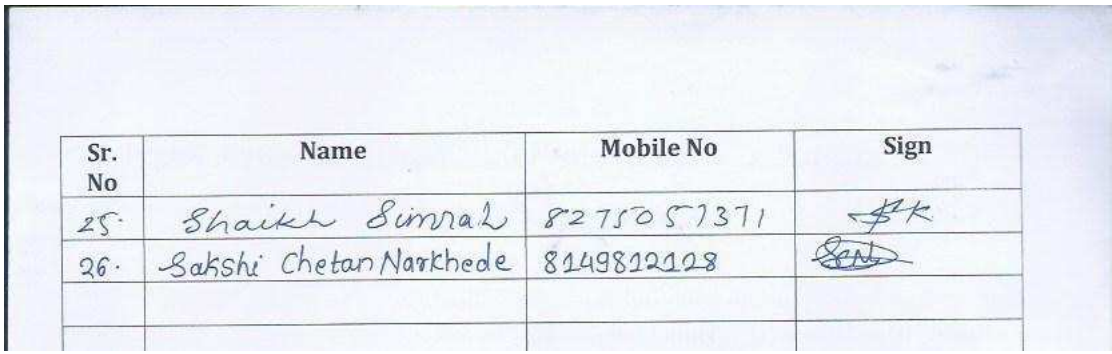 Sr. No Name Mobile No Sign
25. Shaikh Simrah 8275057371
26. Sakshi Chetan Narkhede 8149812128